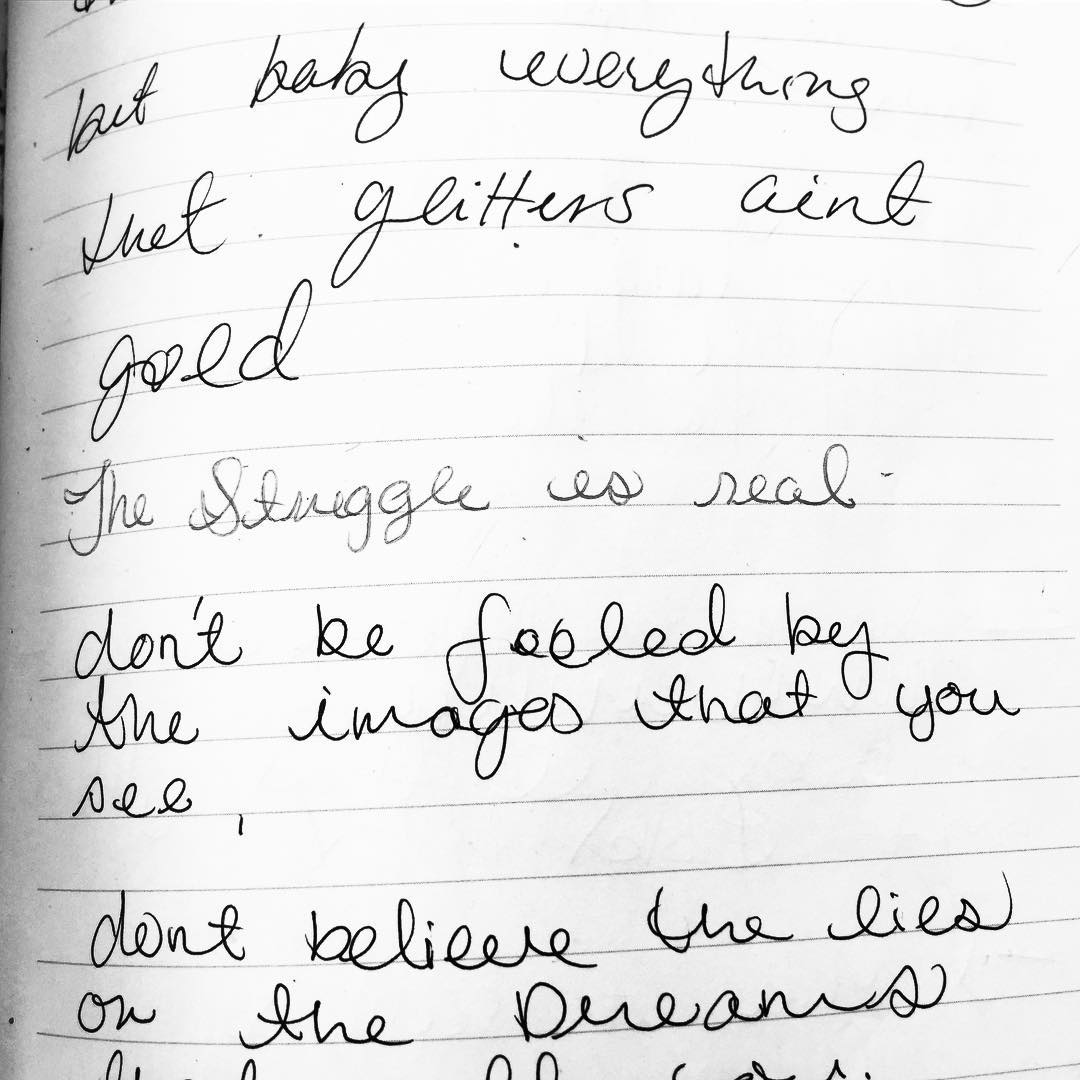 but baby everything
that glitters aint
gold
The Struggle is real
don't be fooled by
the images that you
see,
dont believe the lies
or the Dreams